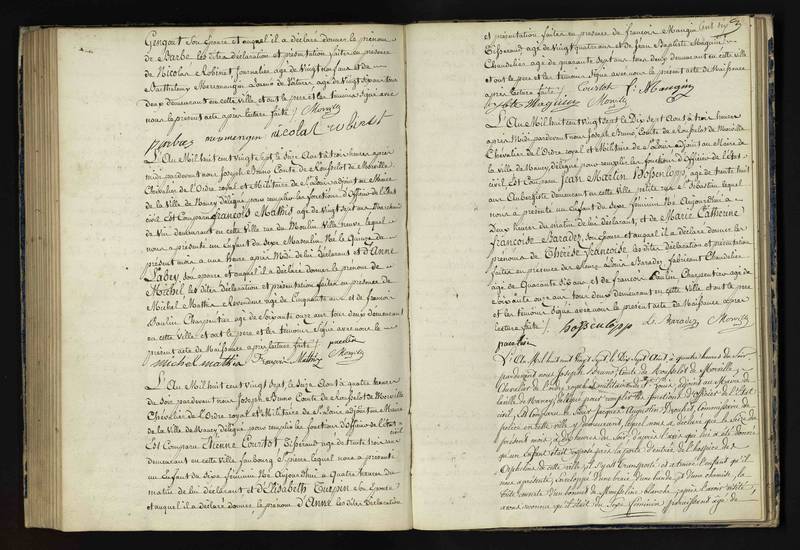 Gengout son épouse et auquel il a déclaré donner le prénom
de Barbe les dites déclaration et présentation faites en présence
de Nicolas Robinet journalier agé de vingt ans et de
Barthelemy agé de vingt ans tous
deux demeurant en cette Ville et ont le pere et les témoins signé avec
nous le présent acte après lecture faite /.
nicolas robinet
L'An Mil huit cent vingt sept le seize Aout à trois heures après
midi pardevant nous Joseph Bruno Comte de Rousselot de Morville
Chevalier de l'Ordre royal et Militaire de St Louis adjoint au Maire
de la Ville de Nancy délégué pour remplir les fonctions d'Officier de l'Etat
civil Est Comparu François Mathis agé de vingt sept ans Marchand
de Vin demeurant en cette Ville rue du Moulin Ville neuve lequel
nous a présenté un Enfant du Sexe Masculin Né le Quinze du
présent mois a une heure après Midi de lui déclarant et d'Anne
Labey son épouse et auquel il a déclaré donner le prénom de
Michel les dites Déclaration et présentation faites en présence de
Michel Mathis Revendeur agé de Cinquante ans et de francois
Paulin Charpentier agé de soixante onze ans tous deux demeurant
en cette Ville et ont le pere et les témoins signé avec nous le
présent acte de Naissance après lecture faite /. paulin
michel mathis François Mathis
L'An Mil huit cent Vingt Sept le Seize Aout à quatre heures
du soir pardevant nous Joseph Bruno Comte de Rousselot de Morville
Chevalier de l'Ordre royal et Militaire de St Louis adjoint au Maire
de la Ville de Nancy délégué pour remplir les fonctions d'Officier de l'Etat
civil
Est Comparu Etienne Courtot Tisserand agé de trente trois ans
demeurant en cette Ville faubourg St pierre lequel nous a présenté
un Enfant du Sexe féminin Né Aujourd'hui a quatre heures du
matin de lui déclarant et d'Elisabeth Turpin son Epouse
et auquel il a déclaré donner le prénom d'Anne les dites Déclaration
et présentation faites en présence de francois Maugin
Tisserand agé de Vingt quatre ans et de Jean Baptiste Magnien
Chandelier agé de quarante sept ans tous deux demeurant en cette ville
et ont le pere et les témoins Signé avec nous le présent acte de Naissance
après lecture faite /. Courtot f. Maugin
L'An Mil huit cent vingt sept le Dix sept Aout à trois heures
après Midi pardevant nous Joseph Bruno Comte de Rousselot de Morville
Chevalier de l'Ordre royal et Militaire de St Louis adjoint au Maire de
la Ville de Nancy délégué pour remplir les fonctions d'Officier de l'Etat
civil Est Comparu Jean Martin Hoffenlopp agé de trente huit
ans Aubergiste demeurant en cette Ville petite rue St Sebastien lequel
nous a présenté un Enfant du Sexe féminin Né Aujourd'hui a
Deux heures du matin de lui déclarant et de Marie Catherine
françoise Baradez son Epouse et auquel il a déclaré donner les
prénoms de Thérèse françoise les dites Déclaration et présentation
faites en présence de Baradez fabricant Chandelier
agé de Quarante Six ans et de francois Paulin Charpentier agé de
Soixante onze ans tous deux demeurant en cette Ville et ont le pere
et les témoins Signé avec nous le présent acte de Naissance après
lecture faite /. hoffenlopp Baradez
paulin
L'An Mil huit cent Vingt Sept le Dix sept Aout à quatre heures du soir
pardevant nous Joseph Bruno Comte de Rousselot de Morville
Chevalier de l'ordre royal et militaire de St Louis adjoint au Maire de
la ville de Nancy délégué pour remplir les fonctions d'officier de l'Etat
civil, Est Comparu le Sieur Jacques Augustin Commissaire de
police en cette ville y demeurant, lequel nous a déclaré que le Seize du
présent mois, à dix heures du soir, d'après l'avis qui lui a été donné
qu'un Enfant était exposé près la porte d'entrée de l'hospice des
Orphelins de cette ville il s'y est transporté et a trouvé l'enfant qu'il
nous a présenté, Enveloppé d'une d'une bande et d'une chemise, la
tête couverte d'un bonnet de Mousseline blanche, après l'avoir visité,
avons reconnu qu'il était du Sexe féminin paraissant agé de